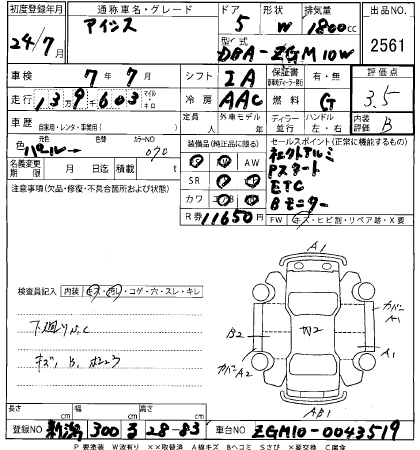 初度登録年月 通称車名・グレード ドア 形状 排気量 出品NO.
24/7月 アイシス 5 W 1800cc 2561
型式 DBA-ZGM10W
車検 7年7月 シフト IA 保証書 有・無 評価点
走行 13万9千603 マイル・キロ 冷房 AAC 燃料 G 3.5
車歴 自家用・レンタ・事業用( ) 定員 人 外車モデル 年 ディーラー 並行 ハンドル 左・右 内装評価 B
色 元色 パール 色替 カラーNO 070
装備品(純正品に限る) セールスポイント(正常に機能するもの)
名義変更期限 月 日迄 積載 t
AW
SR
カワ
R券 11650円
社外アルミ
Pスタート
ETC
Bモニター
FW キズ・ヒビ割・リペア跡・X要
注意事項(欠品・修復・不具合箇所および状態)
検査員記入 内装 キズ・汚れ・コゲ・穴・スレ・キレ
下廻りS.C
キズ、B、ホココ
A1
カバーA1
B2
カバーA2
A1
AB1
長さ cm 幅 cm 高さ cm
登録NO 新潟 300 る 28-83 車台NO ZGM10-0043519
P 要塗装 W波有り ××取替済 A線キズ Bヘコミ Sさび ×要交換 C腐食